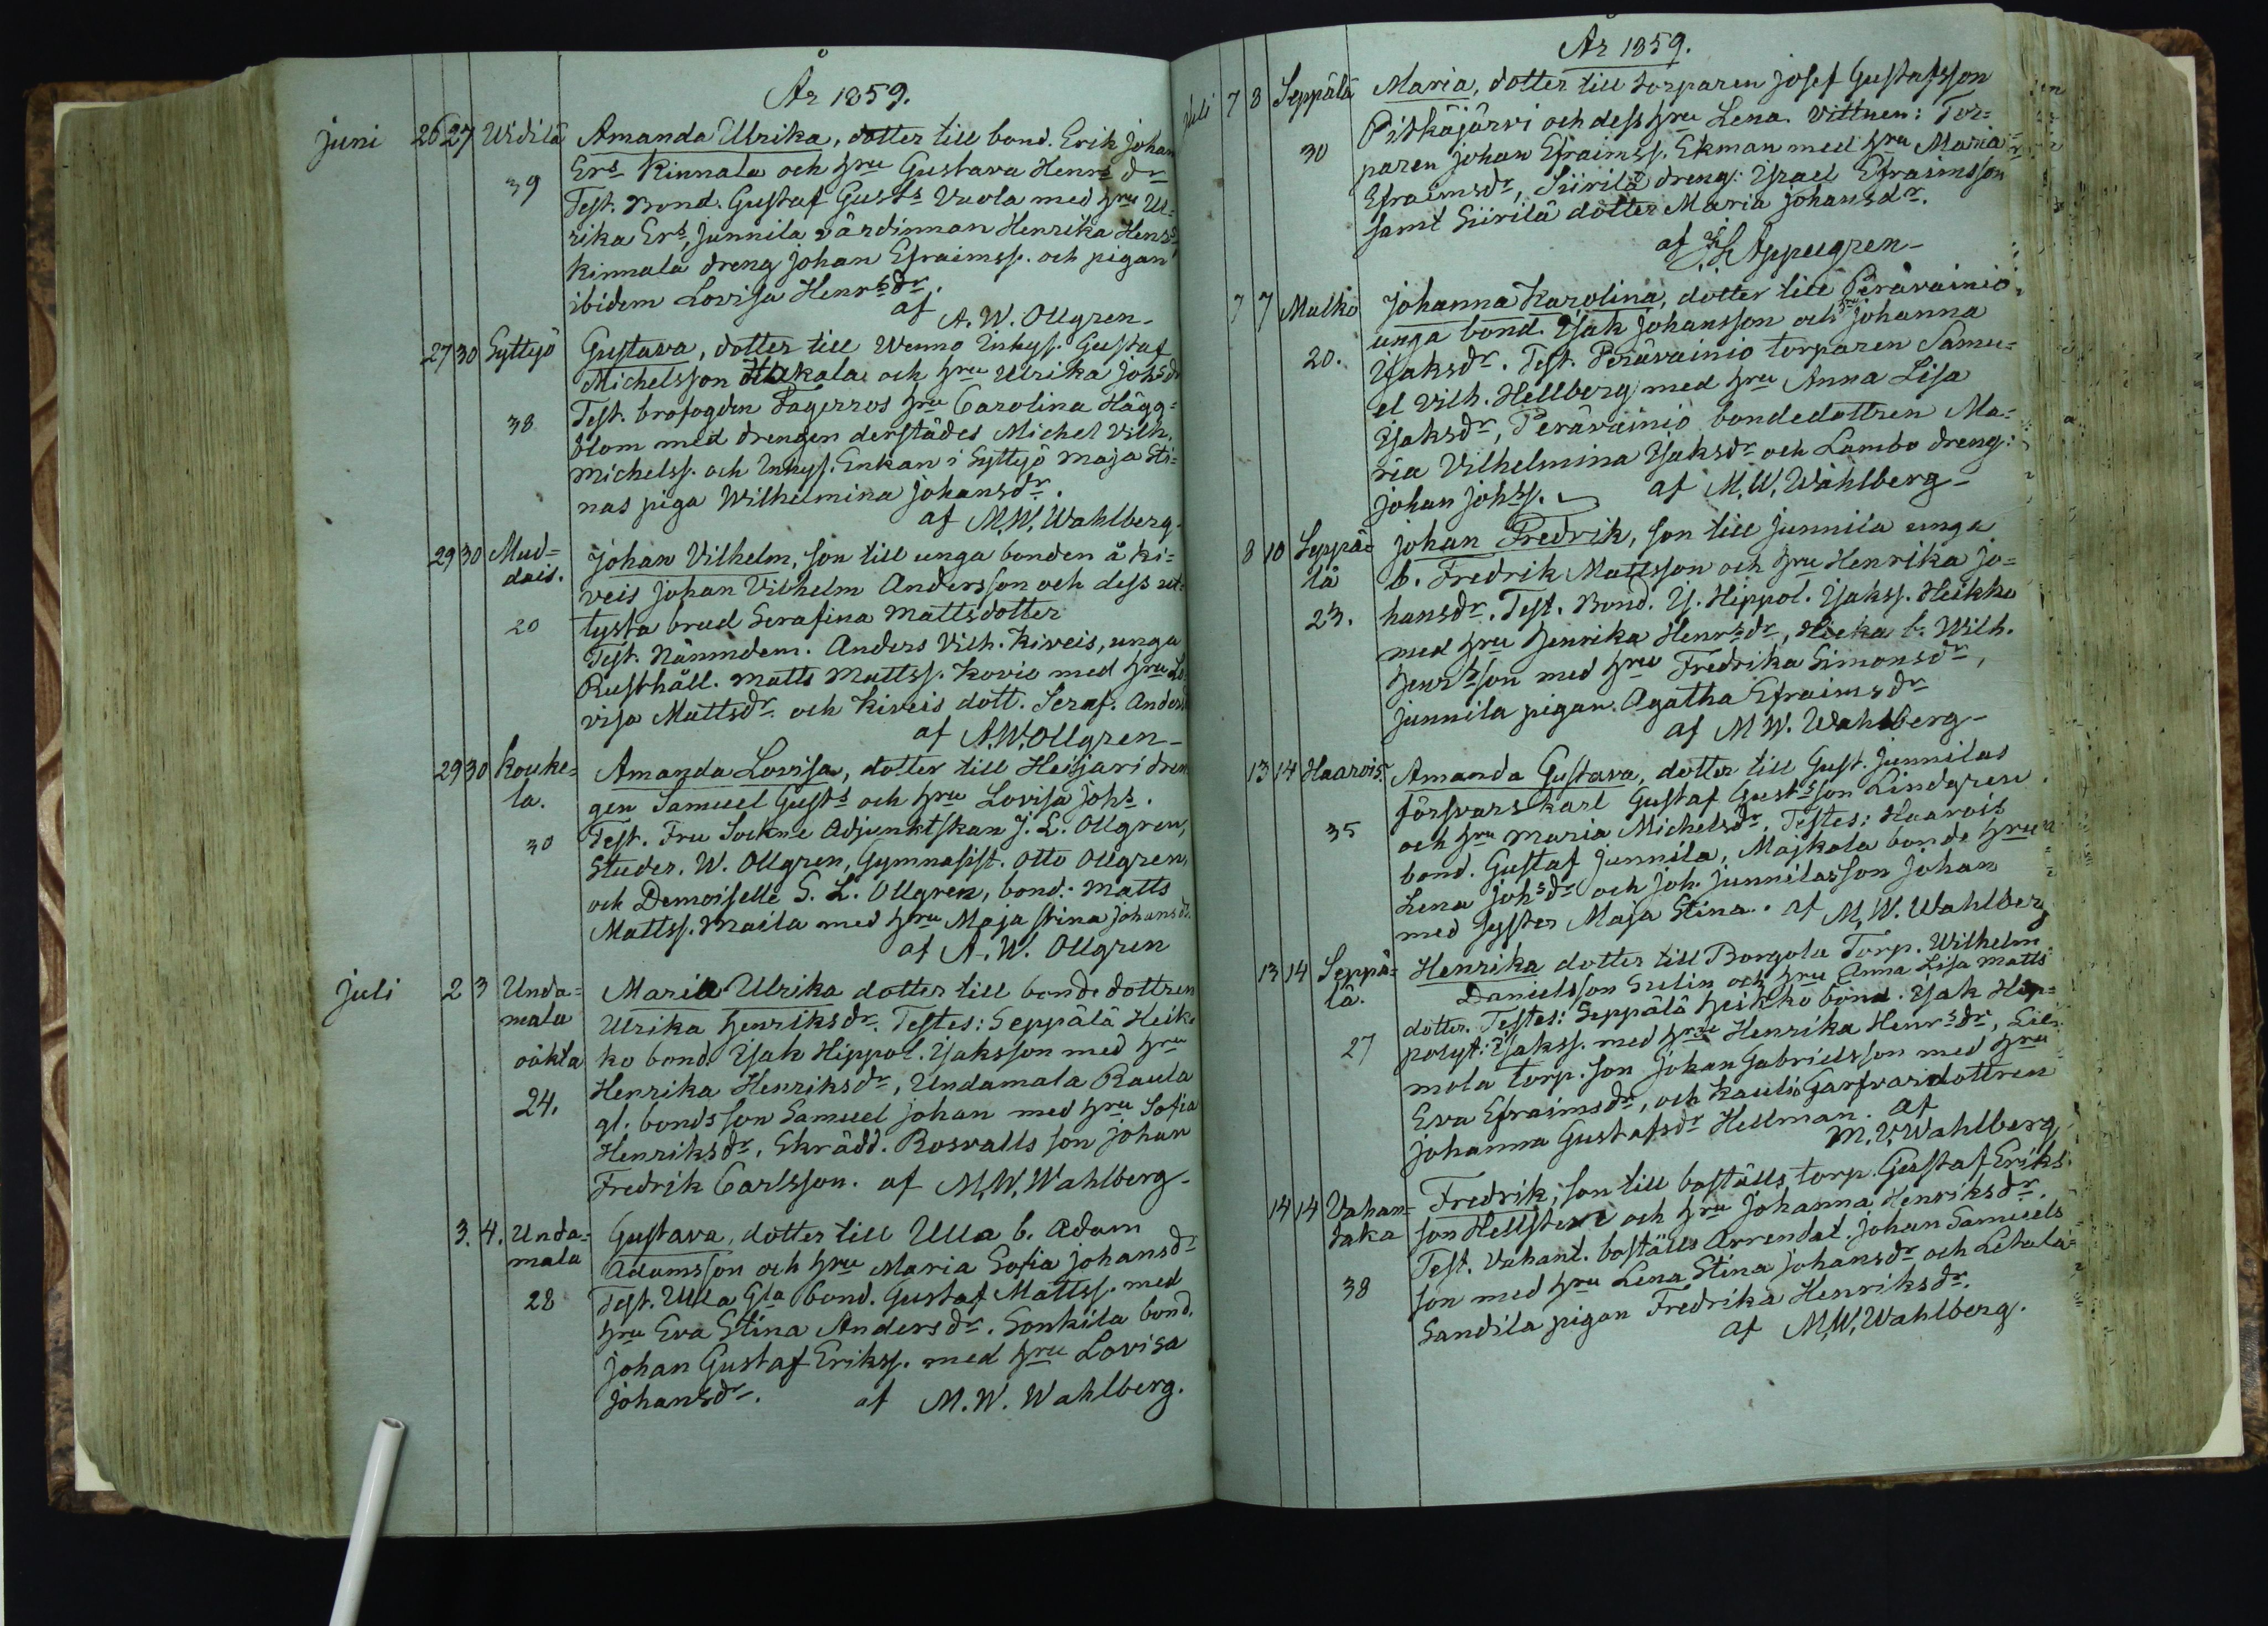 År 1859.
juni 26 27 Uidilä Amanda Ulrika, dotter till bond. Erik Johan
39 Ers Kinnala och hru Gustava Henrs dr
Test. Bond. Gustaf Gusts Uuola med hru Ul=
rika Ers, Junnila värdinnan Henrika Henrs
Kinnala dreng Johan Efraimss. och pigan
ibidem Lovisa Henrsdr.
af A. W. Ollgren
27 30 Syttyö Gustava, dotter till Wenno Inhys. Gustaf
Michelsson och hru Ulrika Johsdr
38 Test. brofogden Fagerros hru Carolina Hägg=
blom med drengen derstädes Michel Vilh.
Michelss. och Inhys. Enkan i Syttyö Maja Sti=
nas piga Wilhelmina Johansdr.
af M.W. Wahlberg.
29 30 Mud= Johan Vilhelm, son till unga bonden å Ki=
dais. veis Johan Vilhelm Andersson och dess ut=
20 lysta brud Serafina Mattsdotter
Test. Nämndem. Anders Vilh. Kiveis, unga
Rusthåll. Matts Mattss. Kovio med hru Lo
visa Mattsdr. och Kiveis dott. Seraf. Anders
af A.W. Ollgren
29 30 Kouke= Amanda Lovisa, dotter till Heikjari dren
la. gen Samuel Gusts och hru Lovisa Johs.
30 Test. Fru Sockne Adjunktskan J. L. Ollgren,
Studer. W. Ollgren, Gymnasist. Otto Ollgren,
och Demoiselle S. L. Ollgren, bond. Matts
Mattss. Maila med hru Maja Stina Johansdr.
af A. W. Ollgren
juli 2 3 Unda= Maria Ulrika dotter till bondedottren
mala Ulrika Henriksdr. Testes: Seppälä Heik
oäkta ko bond. Isak Hippol. Isaksson med hru
24. Henrika Henriksdr, Undamala Raula
gl. bonds son Samuel Johan med hru Sofia
Henriksdr, Skrädd. Rosvalls son Johan
Fredrik Carlsson. af M.W. Wahlberg
3. 4. Unda= Gustava, dotter till Ulla b. Adam
mala Adamsson och hru Maria Sofia Johansdr
28 Test. Ulla Gla bond. Gustaf Mattss. med
hru Eva Stina Andersdr. Sonkila bond.
Johan Gustaf Erikss. med hru Lovisa
Johansdr. af M. W. Wahlberg.
År 1859.
Juli 7 8 Seppälä Maria, dotter till torparen Josef Gustafsson
Pitkäjärvi och dess hru Lena. Vittnen: Tor=
30 paren Johan Efraimss. Ekman med hru Maria
Efraimsdr, Siirilä dreng: Israel Efraimsson
samt Siirilä dotter Maria Johansdr.
af Appelgren
7 7 Malko Johanna Karolina, dotter till Perävainio
unga bond. Isak Johansson och hru Johanna
20. Isaksdr. Test. Perävainio torparen Samu=
el Vilh. Hellberg med hru Anna Lisa
Isaksdr, Perävainio bondedottren Ma=
ria Vilhelmina Isaksdr och Lambo dreng:
Johan Johss. af M.W. Wahlberg
8 10 Seppä= Johan Fredrik, son till Junnila unga
lä b. Fredrik Mattsson och hru Henrika Jo=
23. hansdr. Test. Bond. Is. Hippol. Isakss. Heikko
med hru Henrika Henrsdr, Hieka b. Wilh.
Henrsson med hru Fredrika Simonsdr,
Junnila pigan Agatha Efraimsdr
af M W. Wahlberg
13 14 Haarois Amanda Gustava, dotter till Gust. Junnilas
försvarskarl Gustaf Gustsson Lindgren
35 och hru Maria Michelsdr, Testes: Haarois
bond. Gustaf Junnila, Majkola bonde hru
Lena Johsdr och Joh. Junnilas son Johan
med syster Maja Stina. af M. W. Wahlberg
13 14 Seppä= Henrika dotter till Borgola Torp. Wilhelm
lä. Danielsson Selin och hru Anna Lisa Matts
dotter. Testes: Seppälä Heikko bond. Isak Hip=
27 polyt: Isakss. med hru Henrika Henrsdr, Lie
mola torp. son Johan Gabrielsson med hru
Eva Efraimsdr, och Kaulis Garfvaredottren
Johanna Gustafsdr Hellman. af
M. W. Wahlberg
14 14 Vahan= Fredrik, son till boställs torp. Gustaf Eriks
taka son Hellsten och hru Johanna Henriksdr.
Test. Vahant. boställs Arrendat. Johan Samuels
38 son med hru Lena Stina Johansdr och Letala
Sandila pigan Fredrika Henriksdr.
af M.W. Wahlberg.